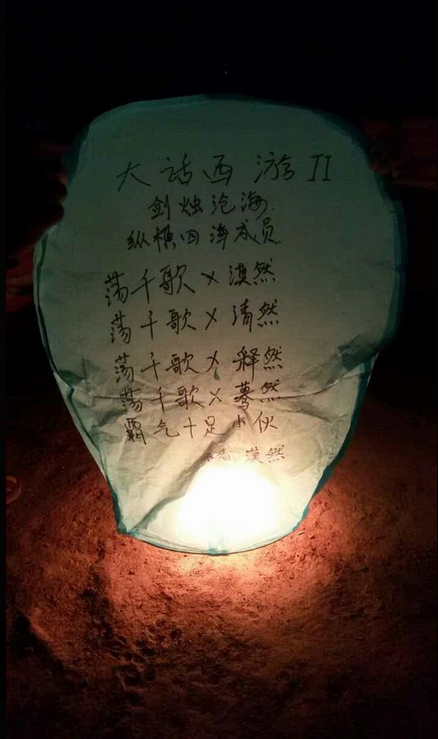 大话西游II
剑烛沧海
纵横四海成员
荡千歌×漠然
荡千歌×清然
荡千歌×释然
荡千歌×蓦然
霸气十足小伙
漠然